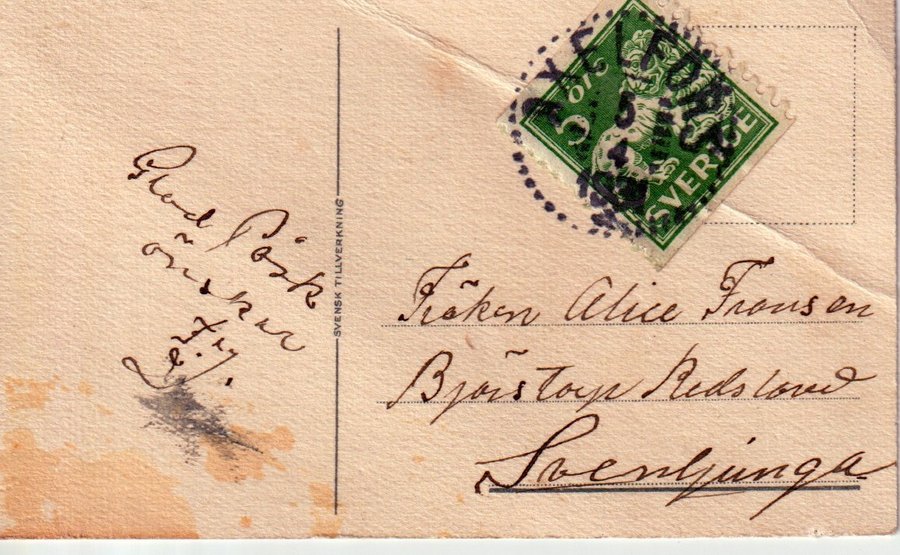 Glad Påsk
önskar
SVENSK TILLVERKNING
5 ÖRE
SVERIGE
AXELFORS
5
4
Fröken Alice Fransen
Björstorp Redslared
Svenljunga